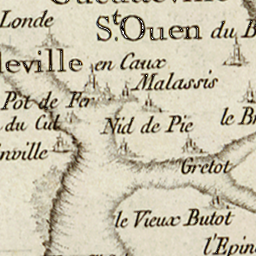 Londe
St. Ouen du
leville en Caux
Malassis
Pot de Fer
du Cul Nid de Pie le
nville
Gretot
le Vieux Butot
l'Epin